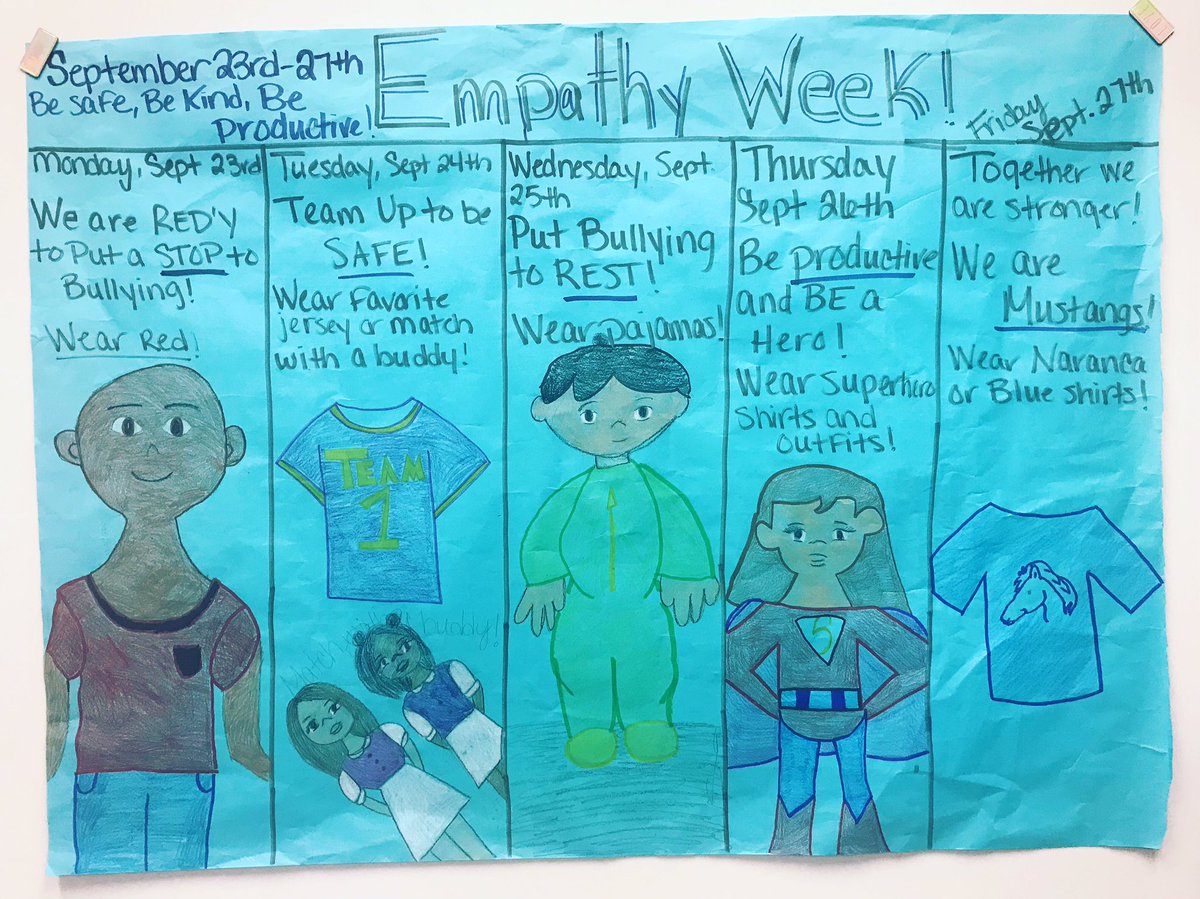 September 23rd-27th
Be safe, Be Kind, Be
Productive!
Empathy Week!
Monday, Sept 23rd
We are RED'Y
to Put a STOP to
Bullying!
Wear Red!
Tuesday, Sept 24th
Team Up to be
SAFE!
Wear Favorite
jersey or match
with a buddy!
TEAM
1
buddy!
Wednesday, Sept.
25th
Put Bullying
to REST!
Wear pajamas!
Thursday
Sept 26th
Be productive
and BE a
Hero!
Wear Superhero
Shirts and
outfits!
S
Friday
Sept. 27th
Together we
are stronger!
We are
Mustangs!
Wear Naranca
or Blue shirts!